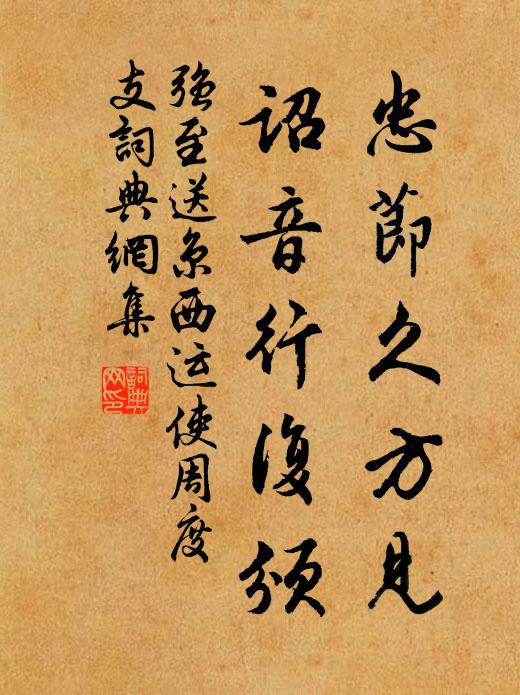 忠節久方見
詔音行復頒
強至送京西运使周度
支詞典網集
詞典
网印